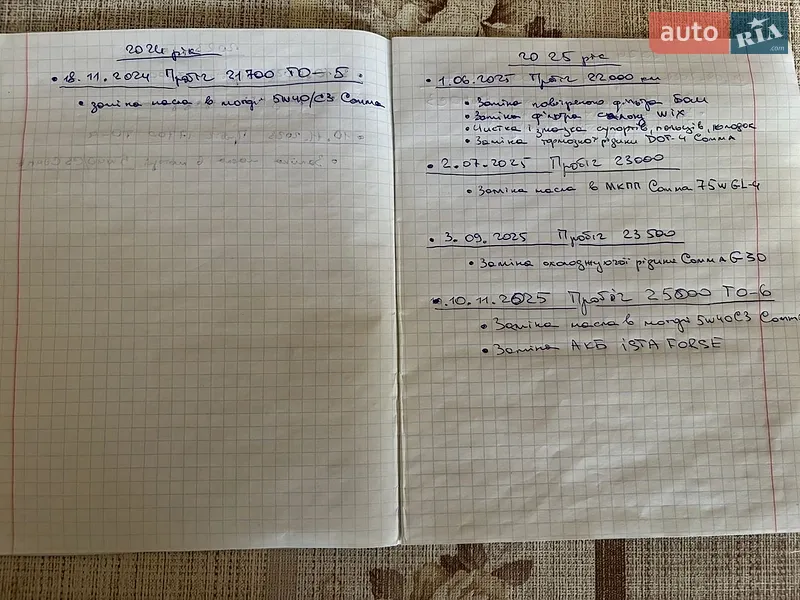 auto RIA.com
2024 рік
• 18.11.2024 Пробіг 21700 ТО-5.
• заміна масла в моторі 5W40/C3 Comma
2025 рік
• 1.06.2025 Пробіг 22000 км
• Заміна повітряного фільтра Bosh
• Заміна фільтра салону WIX
• Чистка і змазка супортів, колодок
• Заміна тормозної рідини DOT-4 Comma
• 2.07.2025 Пробіг 23000
• Заміна масла в МКПП Comma 75W GL-4
• 3.09.2025 Пробіг 23500
• Заміна охолоджуючої рідини Comma G30
• 10.11.2025 Пробіг 25000 ТО-6
• Заміна масла в моторі 5W40C3 Comma
• Заміна АКБ iSTA FORSE